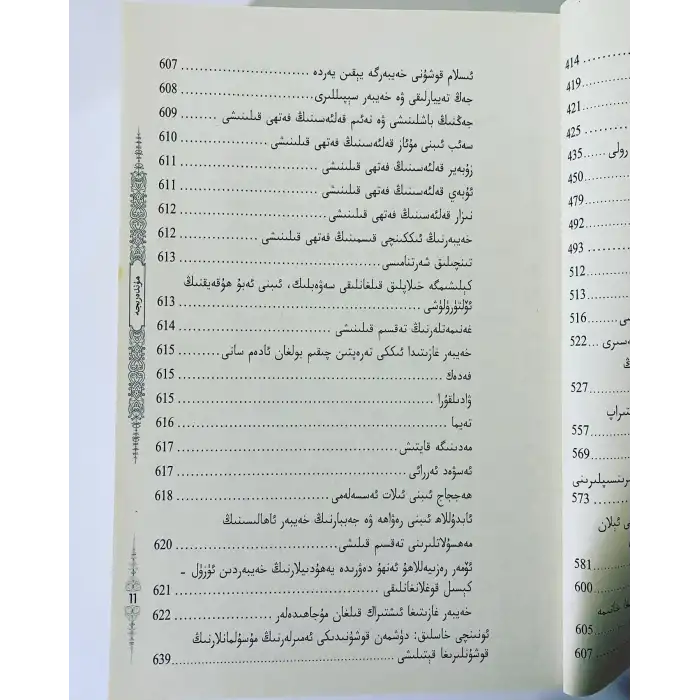 ئىسلام قوشۇنى خەيبەرگە يېقىن يەردە ............................ 607
جەڭ تەييارلىقى ۋە خەيبەر سېپىللىرى............................ 608
جەڭنىڭ باشلىنىشى ۋە نەئىم قەلئەسىنىڭ فەتھى قىلىنىشى ........ 609
سەئب ئىبنى مۇئاز قەلئەسىنىڭ فەتھى قىلىنىشى .................. 610
زۇبەير قەلئەسىنىڭ فەتھى قىلىنىشى ............................ 611
ئۇبەي قەلئەسىنىڭ فەتھى قىلىنىشى ............................ 611
نىزار قەلئەسىنىڭ فەتھى قىلىنىشى............................ 612
خەيبەرنىڭ ئىككىنچى قىسمىنىڭ فەتھى قىلىنىشى.................. 612
تىنچىلىق شەرتنامىسى ...................................... 613
كېلىشىمگە خىلاپلىق قىلغانلىقى سەۋەبلىك، ئىبنى ئەبۇ ھۇقەيقنىڭ
ئۆلتۈرۈلۈشى .............................................. 613
غەنىمەتلەرنىڭ تەقسىم قىلىنىشى ............................ 614
خەيبەر غازىتىدا ئىككى تەرەپتىن چىقىم بولغان ئادەم سانى........ 615
فەدەك .................................................... 615
ۋادىلقۇرا ................................................ 615
تەيما .................................................... 616
مەدىنىگە قايتىش .......................................... 617
ئەسۋەد ئەررائى ............................................ 617
ھەججاج ئىبنى ئىلات ئەسسەلەمى.............................. 618
ئابدۇللاھ ئىبنى رەۋاھە ۋە جەببارنىڭ خەيبەر ئاھالىسىنىڭ
مەھسۇلاتلىرىنى تەقسىم قىلىشى.............................. 620
ئۆمەر رەزىيەللاھۇ ئەنھۇ دەۋرىدە يەھۇدىيلارنىڭ خەيبەردىن ئۈزۈل -
كېسىل قوغلانغانلىقى ...................................... 621
خەيبەر غازىتىغا ئىشتىراك قىلغان مۇجاھىدەلەر ................ 622
ئونىنچى خاسلىق: دۈشمەن قوشۇنىدىكى ئەمىرلەرنىڭ مۇسۇلمانلارنىڭ
قوشۇنلىرىغا قېتىلىشى...................................... 639
مۇندەرىجە
11
414
419
421
425
رولى ...... 435
450
479
492
493
512
513
516
522
527
557
569
573
581
600
605
607